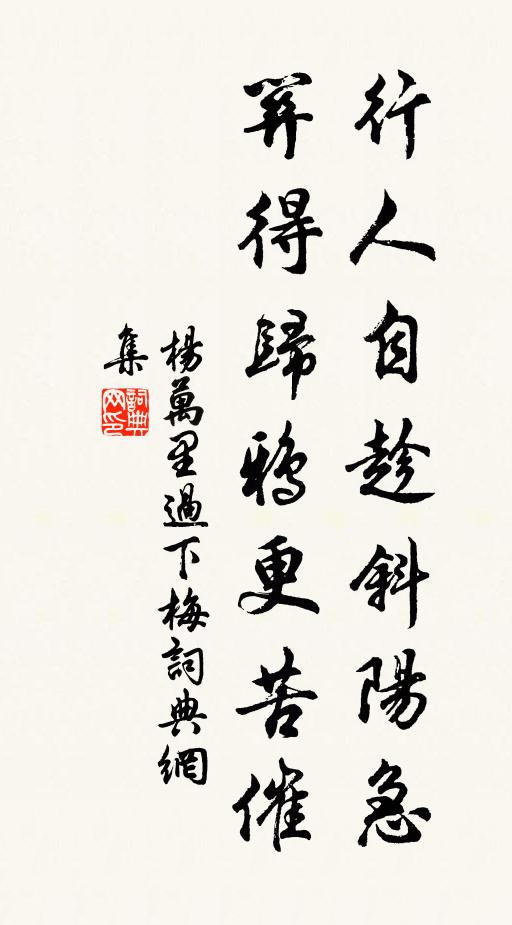 行人自趁斜陽急
關得歸鴉更苦催
楊萬里過下梅詞典網
集
詞典
网印